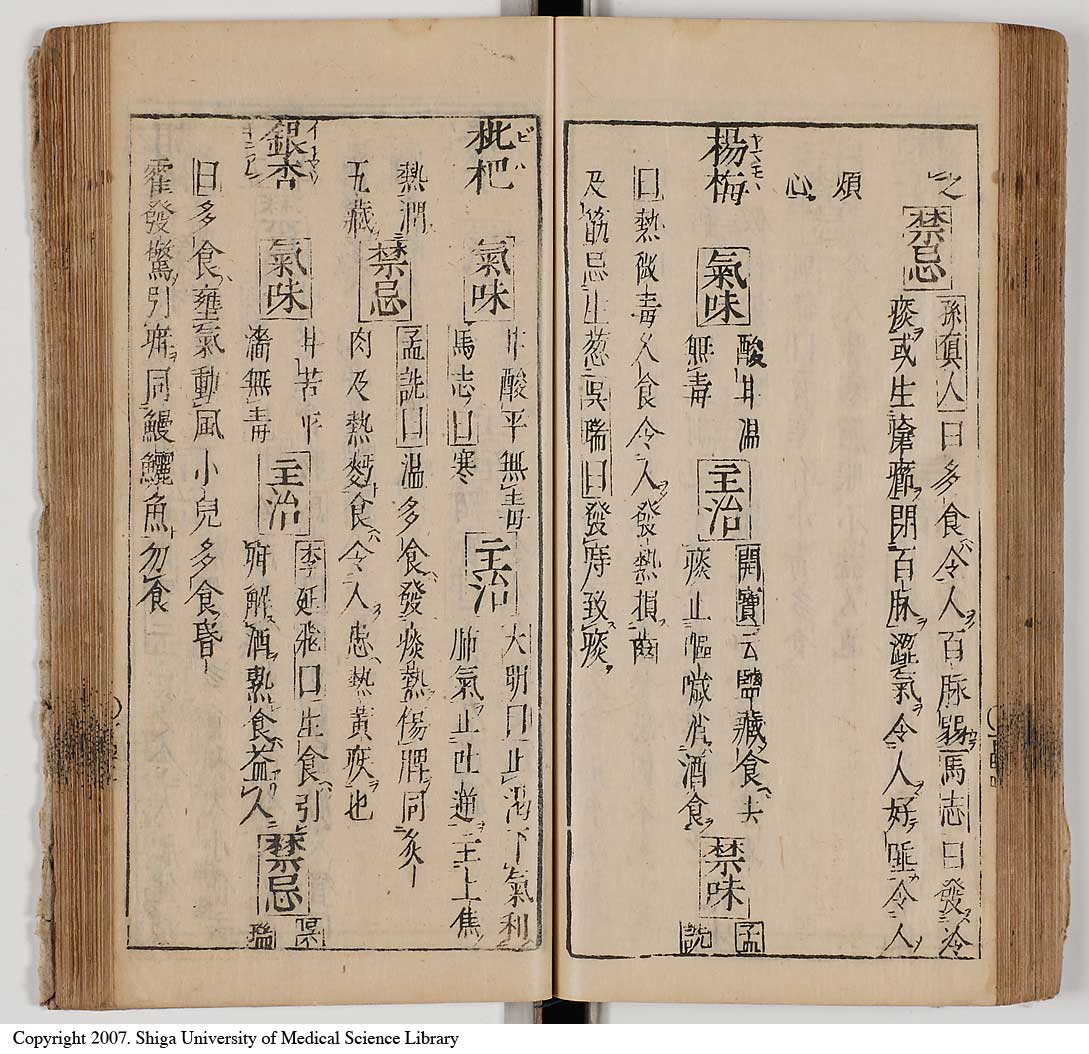 之
禁忌
孫真人曰多食令人百脉弱馬志曰發冷
痰或生瘡癤閉百脉澁氣令人好唾令人
煩
心
楊梅
ヤマモハ
氣味
酸甘温
無毒
主治
開寶云鹽藏食去
痰止嘔噦消酒食
禁味
孟
詵
曰熱微毒久食令人發熱損齒
及筋忌生葱吳瑞曰發 致痰
枇杷
ビハ
氣味
甘酸平無毒
馬志曰寒
主治
大明曰止渇下氣利
肺氣止吐逆主上焦
熱潤
五藏
禁忌
孟詵曰温多食發痰熱傷脾同炙
肉及熱麪食令人患熱黃疾也
銀杏
氣味
甘苦平
濇無毒
主治
李延飛曰生食引
疳解酒熟食益人
禁忌
吳
瑞
曰多食壅氣動風小兒多食昏
霍發驚引疳同鰻鱺魚勿食
Copyright 2007. Shiga University of Medical Science Library